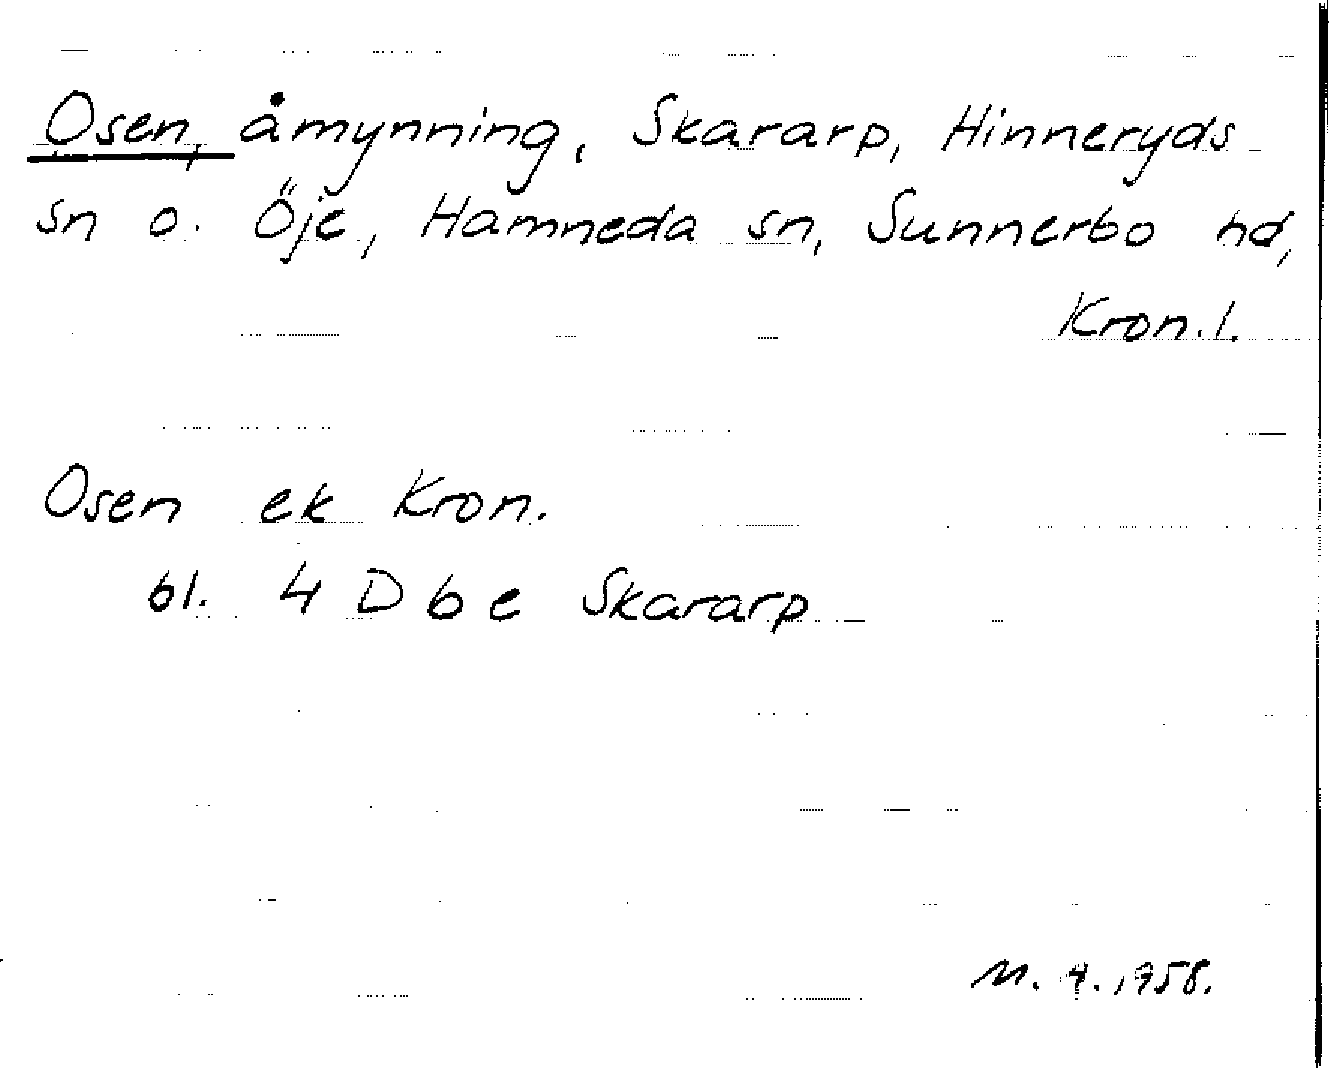 Osen, åmynning, Skararp, Hinneryds
sn o. Öje, Hamneda sn, Sunnerbo hd,
Kron.l.
Osen ek Kron.
bl. 4 D b e Skararp
M. 4. 1958.